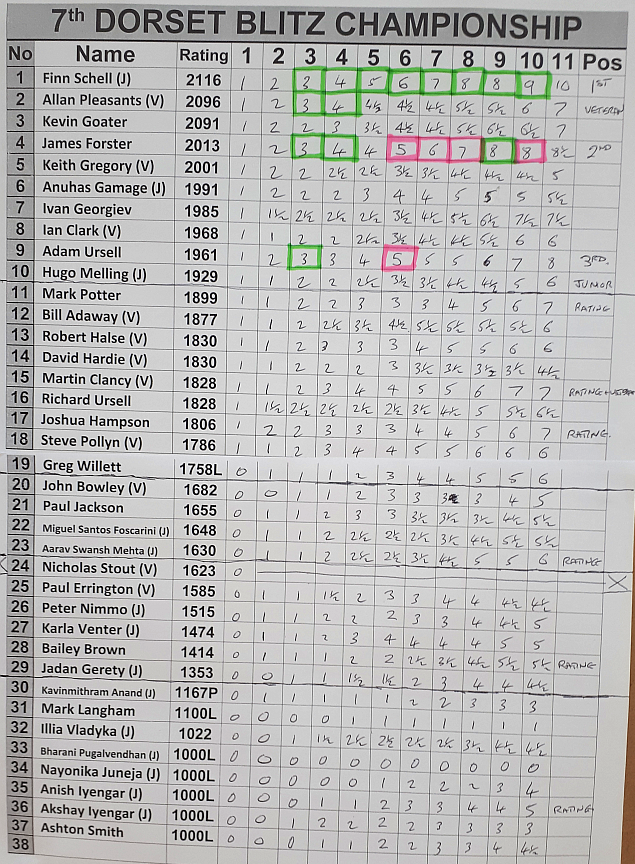 7th DORSET BLITZ CHAMPIONSHIP
No Name Rating 1 2 3 4 5 6 7 8 9 10 11 Pos
1 Finn Schell (J) 2116 1 2 3 4 5 6 7 8 8 9 10 1ST
2 Allan Pleasants (V) 2096 1 2 3 4 4½ 4½ 4½ 5½ 5½ 6 7 VETERAN
3 Kevin Goater 2091 1 2 2 3 3½ 4½ 4½ 5½ 6½ 6½ 7
4 James Forster 2013 1 2 3 4 4 5 6 7 8 8 8½ 2ND
5 Keith Gregory (V) 2001 1 2 2 2½ 2½ 3½ 3½ 4½ 4½ 4½ 5
6 Anuhas Gamage (J) 1991 1 2 2 2 3 4 4 5 5 5 5½
7 Ivan Georgiev 1985 1 1½ 2½ 2½ 2½ 3½ 4½ 5½ 6½ 7½ 7½
8 Ian Clark (V) 1968 1 1 2 2 2½ 3½ 4½ 4½ 5½ 6 6
9 Adam Ursell 1961 1 2 3 3 4 5 5 5 6 7 8 3RD.
10 Hugo Melling (J) 1929 1 1 2 2 2½ 3½ 3½ 4½ 4½ 5 6 JUNIOR
11 Mark Potter 1899 1 1 2 2 3 3 3 4 5 6 7 RATING
12 Bill Adaway (V) 1877 1 1 2 2½ 3½ 4½ 5½ 5½ 5½ 5½ 6
13 Robert Halse (V) 1830 1 1 2 3 3 3 4 5 5 6 6
14 David Hardie (V) 1830 1 1 2 2 2 3 3½ 3½ 3½ 3½ 4½
15 Martin Clancy (V) 1828 1 1 2 3 4 4 5 5 6 7 7 RATING
16 Richard Ursell 1828 1 1½ 2½ 2½ 2½ 2½ 3½ 4½ 5 5½ 6½
17 Joshua Hampson 1806 1 2 2 3 3 3 4 4 5 6 7 RATING.
18 Steve Pollyn (V) 1786 1 1 2 3 4 4 5 5 6 6 6
19 Greg Willett 1758L 0 1 1 1 2 3 4 4 5 5 6
20 John Bowley (V) 1682 0 0 1 1 2 3 3 3 4 5
21 Paul Jackson 1655 0 1 1 2 3 3 3½ 3½ 3½ 4½ 5½
22 Miguel Santos Foscarini (J) 1648 0 1 1 2 2½ 2½ 2½ 3½ 4½ 5½ 5½
23 Aarav Swansh Mehta (J) 1630 0 1 1 2 2½ 2½ 3½ 4½ 5 5 6 RATING
24 Nicholas Stout (V) 1623 0
25 Paul Errington (V) 1585 0 1 1 1½ 2 3 3 4 4 4½ 4½
26 Peter Nimmo (J) 1515 0 1 1 2 2 2 3 3 4 4½ 5
27 Karla Venter (J) 1474 0 1 1 2 3 4 4 4 4 5 5
28 Bailey Brown 1414 0 1 1 1 2 2 2½ 3½ 4½ 5½ 5½ RATING
29 Jadan Gerety (J) 1353 0 0 1 1 1½ 1½ 2 3 4 4 4½
30 Kavinmithram Anand (J) 1167P 0 1 1 1 1 1 2 2 3 3 3
31 Mark Langham 1100L 0 0 0 0 1 1 1 1 1 1 1
32 Illia Vladyka (J) 1022 0 0 1 1½ 2½ 2½ 2½ 2½ 3½ 4½ 4½
33 Bharani Pugalvendhan (J) 1000L 0 0 0 0 0 0 0 0 0 0 0
34 Nayonika Juneja (J) 1000L 0 0 0 0 0 1 2 2 2 3 4
35 Anish Iyengar (J) 1000L 0 0 0 1 1 2 3 3 4 4 5 RATING
36 Akshay Iyengar (J) 1000L 0 0 1 2 2 2 2 3 3 3 3
37 Ashton Smith 1000L 0 0 0 1 1 2 2 3 3 4 4½
38